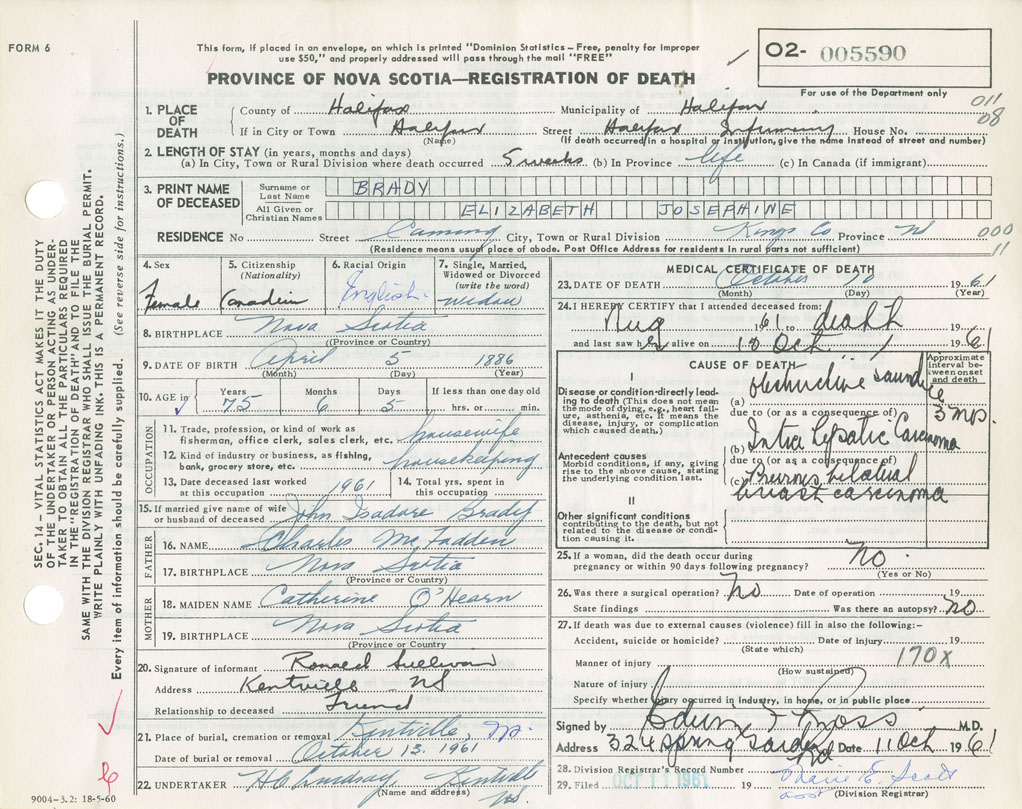 FORM 6
This form, if placed in an envelope, on which is printed "Dominion Statistics – Free, penalty for improper
use $50," and properly addressed will pass through the mail "FREE"
O2- 005590
PROVINCE OF NOVA SCOTIA—REGISTRATION OF DEATH
For use of the Department only
011
08
1. PLACE OF DEATH County of Halifax Municipality of Halifax
If in City or Town Halifax Street Halifax Infirmary House No.
(Name) (If death occurred in a hospital or institution, give the name instead of street and number)
2. LENGTH OF STAY (in years, months and days)
(a) In City, Town or Rural Division where death occurred 5 weeks (b) In Province life (c) In Canada (if immigrant)
3. PRINT NAME OF DECEASED Surname or Last Name BRADY
All Given or Christian Names ELIZABETH JOSEPHINE
RESIDENCE No Street Canning City, Town or Rural Division Kings Co Province N
(Residence means usual place of abode. Post Office Address for residents in rural parts not sufficient)
000
11
4. Sex Female
5. Citizenship (Nationality) Canadian
6. Racial Origin English
7. Single, Married, Widowed or Divorced (write the word) widow
8. BIRTHPLACE Nova Scotia
(Province or Country)
9. DATE OF BIRTH April 5 1886
(Month) (Day) (Year)
10. AGE in Years 75 Months 6 Days 5 If less than one day hrs. or min.
OCCUPATION
11. Trade, profession, or kind of work as fisherman, office clerk, sales clerk, etc. housewife
12. Kind of industry or business, as fishing, bank, grocery store, etc. housekeeping
13. Date deceased last worked at this occupation 1961
14. Total yrs. spent in this occupation
15. If married give name of wife or husband of deceased John Isadore Brady
FATHER
16. NAME Charles McFadden
17. BIRTHPLACE Nova Scotia
(Province or Country)
MOTHER
18. MAIDEN NAME Catherine O'Hearn
19. BIRTHPLACE Nova Scotia
(Province or Country)
20. Signature of informant Ronald Sullivan
Address Kentville NS
Relationship to deceased Friend
21. Place of burial, cremation or removal Kentville, NS.
Date of burial or removal October 13, 1961
22. UNDERTAKER H C Lindsay Kentville NS.
(Name and address)
9004–3.2: 18-5-60
MEDICAL CERTIFICATE OF DEATH
23. DATE OF DEATH October 10 1961
(Month) (Day) (Year)
24. I HEREBY CERTIFY that I attended deceased from:
Aug 1961 to death 19
and last saw her alive on 10 Oct 1961
CAUSE OF DEATH
Approximate interval between onset and death
I
Disease or condition directly leading to death (This does not mean the mode of dying, e.g., heart failure, asthenia, etc. It means the disease, injury, or complication which caused death.)
(a) Obstructive Jaundice 3 mos.
due to (or as a consequence of)
(b) Intra hepatic Carcinoma
Antecedent causes
Morbid conditions, if any, giving rise to the above cause, stating the underlying condition last.
due to (or as a consequence of)
(c) bilateral breast carcinoma
II
Other significant conditions
contributing to the death, but not related to the disease or condition causing it.
25. If a woman, did the death occur during pregnancy or within 90 days following pregnancy? No.
(Yes or No)
26. Was there a surgical operation? No Date of operation 19
State findings Was there an autopsy? No
27. If death was due to external causes (violence) fill in also the following:–
Accident, suicide or homicide? Date of injury 19
(State which)
Manner of injury 170X
(How sustained)
Nature of injury
Specify whether injury occurred in industry, in home, or in public place
Signed by Edwin F Ross M.D.
Address 324 Spring Garden Rd Date 11 Oct 1961
28. Division Registrar's Record Number
29. Filed OCT 11 1961 19 Marie E. Scott
asst (Division Registrar)
SEC. 14 – VITAL STATISTICS ACT MAKES IT THE DUTY
OF THE UNDERTAKER OR PERSON ACTING AS UNDER-
TAKER TO OBTAIN ALL THE PARTICULARS REQUIRED
IN THE "REGISTRATION OF DEATH" AND TO FILE THE
SAME WITH THE DIVISION REGISTRAR WHO SHALL ISSUE THE BURIAL PERMIT.
WRITE PLAINLY WITH UNFADING INK. THIS IS A PERMANENT RECORD.
Every item of information should be carefully supplied. (See reverse side for instructions.)